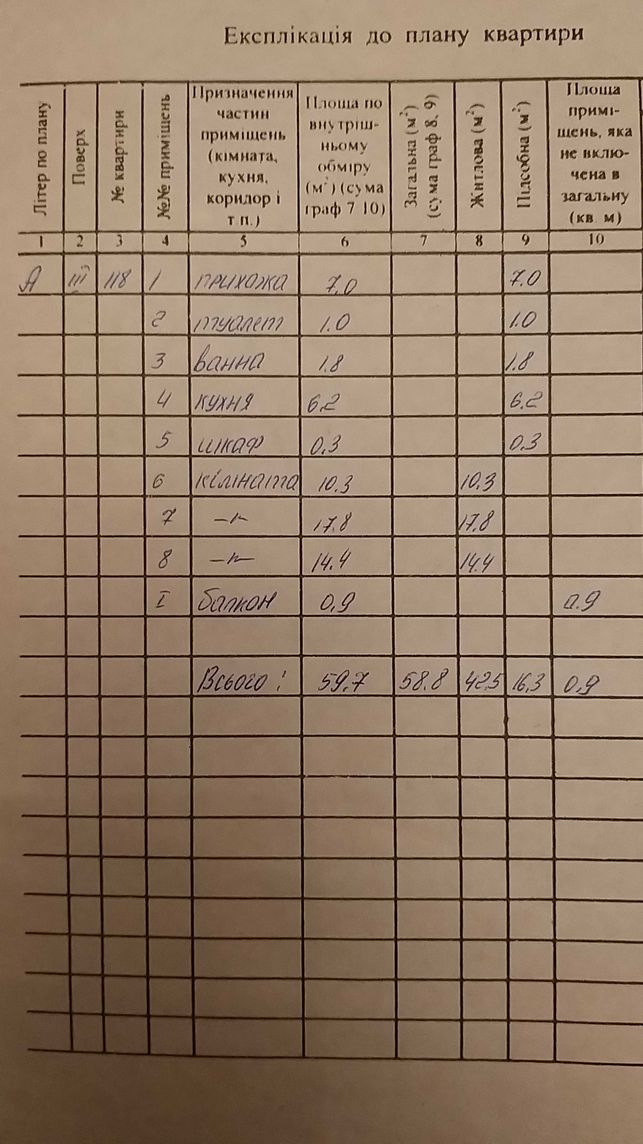 Експлікація до плану квартири
Літер по плану | Поверх | № квартири | №№ приміщень | Призначення частин приміщень (кімната, кухня, коридор і т.п.) | Площа по внутріш-ньому обміру (м²) (сума граф 7 10) | Загальна (м²) (сума граф 8, 9) | Житлова (м²) | Підсобна (м²) | Площа примі-щень, яка не вклю-чена в загальну (кв. м)
1 2 3 4 5 6 7 8 9 10
А III 118 1 прихожа 7,0 7.0
2 туалет 1.0 1.0
3 ванна 1.8 1.8
4 кухня 6.2 6.2
5 шкаф 0,3 0.3
6 кімната 10.3 10.3
7 –"– 17.8 17.8
8 –"– 14.4 14.4
I балкон 0,9 0.9
Всього: 59.7 58.8 42.5 16,3 0,9